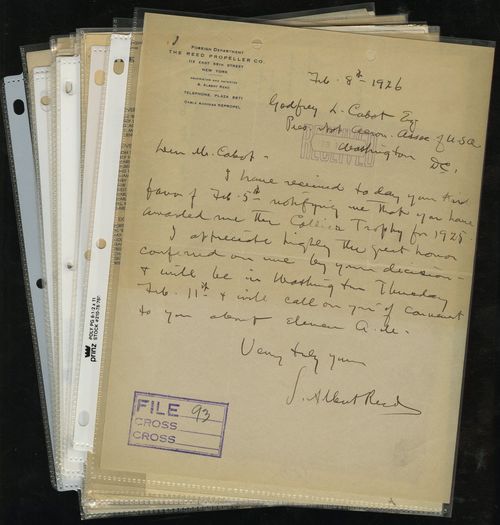 FOREIGN DEPARTMENT
THE REED PROPELLER CO.
113 EAST 55TH STREET
NEW YORK
S. ALBERT REED
TELEPHONE, PLAZA 5871
CABLE ADDRESS REPROPEL
Feb. 8th 1926
Godfrey L. Cabot Esq
Pres. Nat Aeron. Assoc of U.S.A
Washington D.C.
RECEIVED
Dear Mr. Cabot -
I have received today your kind
favor of Feb. 5th notifying me that you have
awarded me the Collier Trophy for 1925
I appreciate highly the great honor
conferred on me by your decision
& will be in Washington Thursday
Feb. 11th & will call on you if convenient
to you about eleven A.M.
Very truly yours
S. Albert Reed
FILE 93
CROSS
CROSS
prinz
POLY PG 8-1-2 x 11